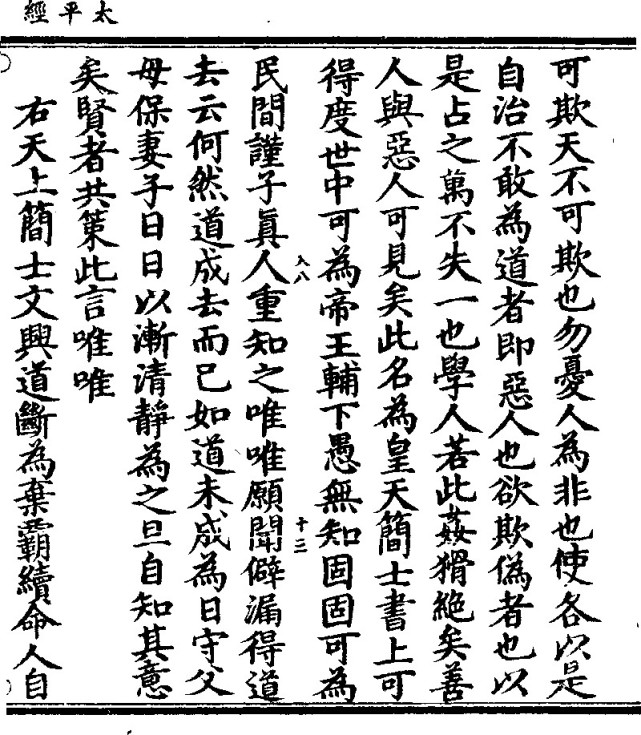 太平經
可欺天不可欺也勿憂人為非也使各以是
自治不敢為道者即惡人也欲欺偽者也以
是占之萬不失一也學人若此姦猾絕矣善
人與惡人可見矣此名為皇天簡士書上可
得度世中可為帝王輔下愚無知固固可為
入八 十三
民間謹子真人重知之唯唯願聞僻漏得道
去云何然道成去而已如道未成為日守父
母保妻子日日以漸清靜為之旦自知其意
矣賢者共策此言唯唯
右天上簡士文興道斷為棄霸續命人自